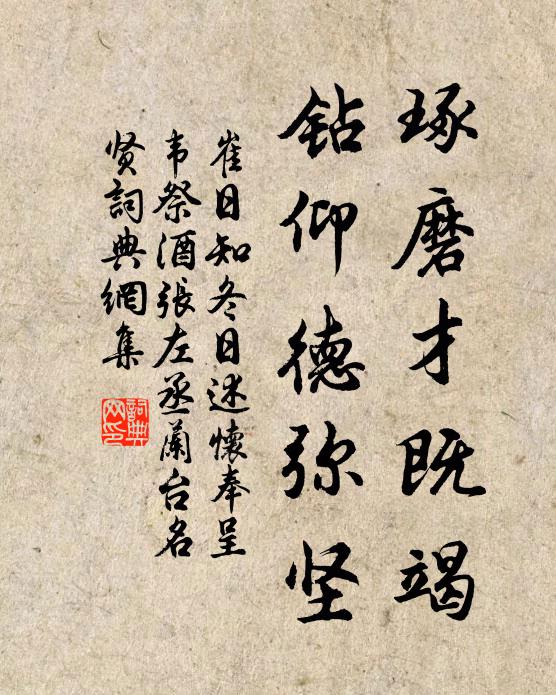 琢磨才既竭
钻仰德弥坚
崔日知冬日述懷奉呈
韦祭酒張左丞蘭台名
贤詞典網集
詞典网印